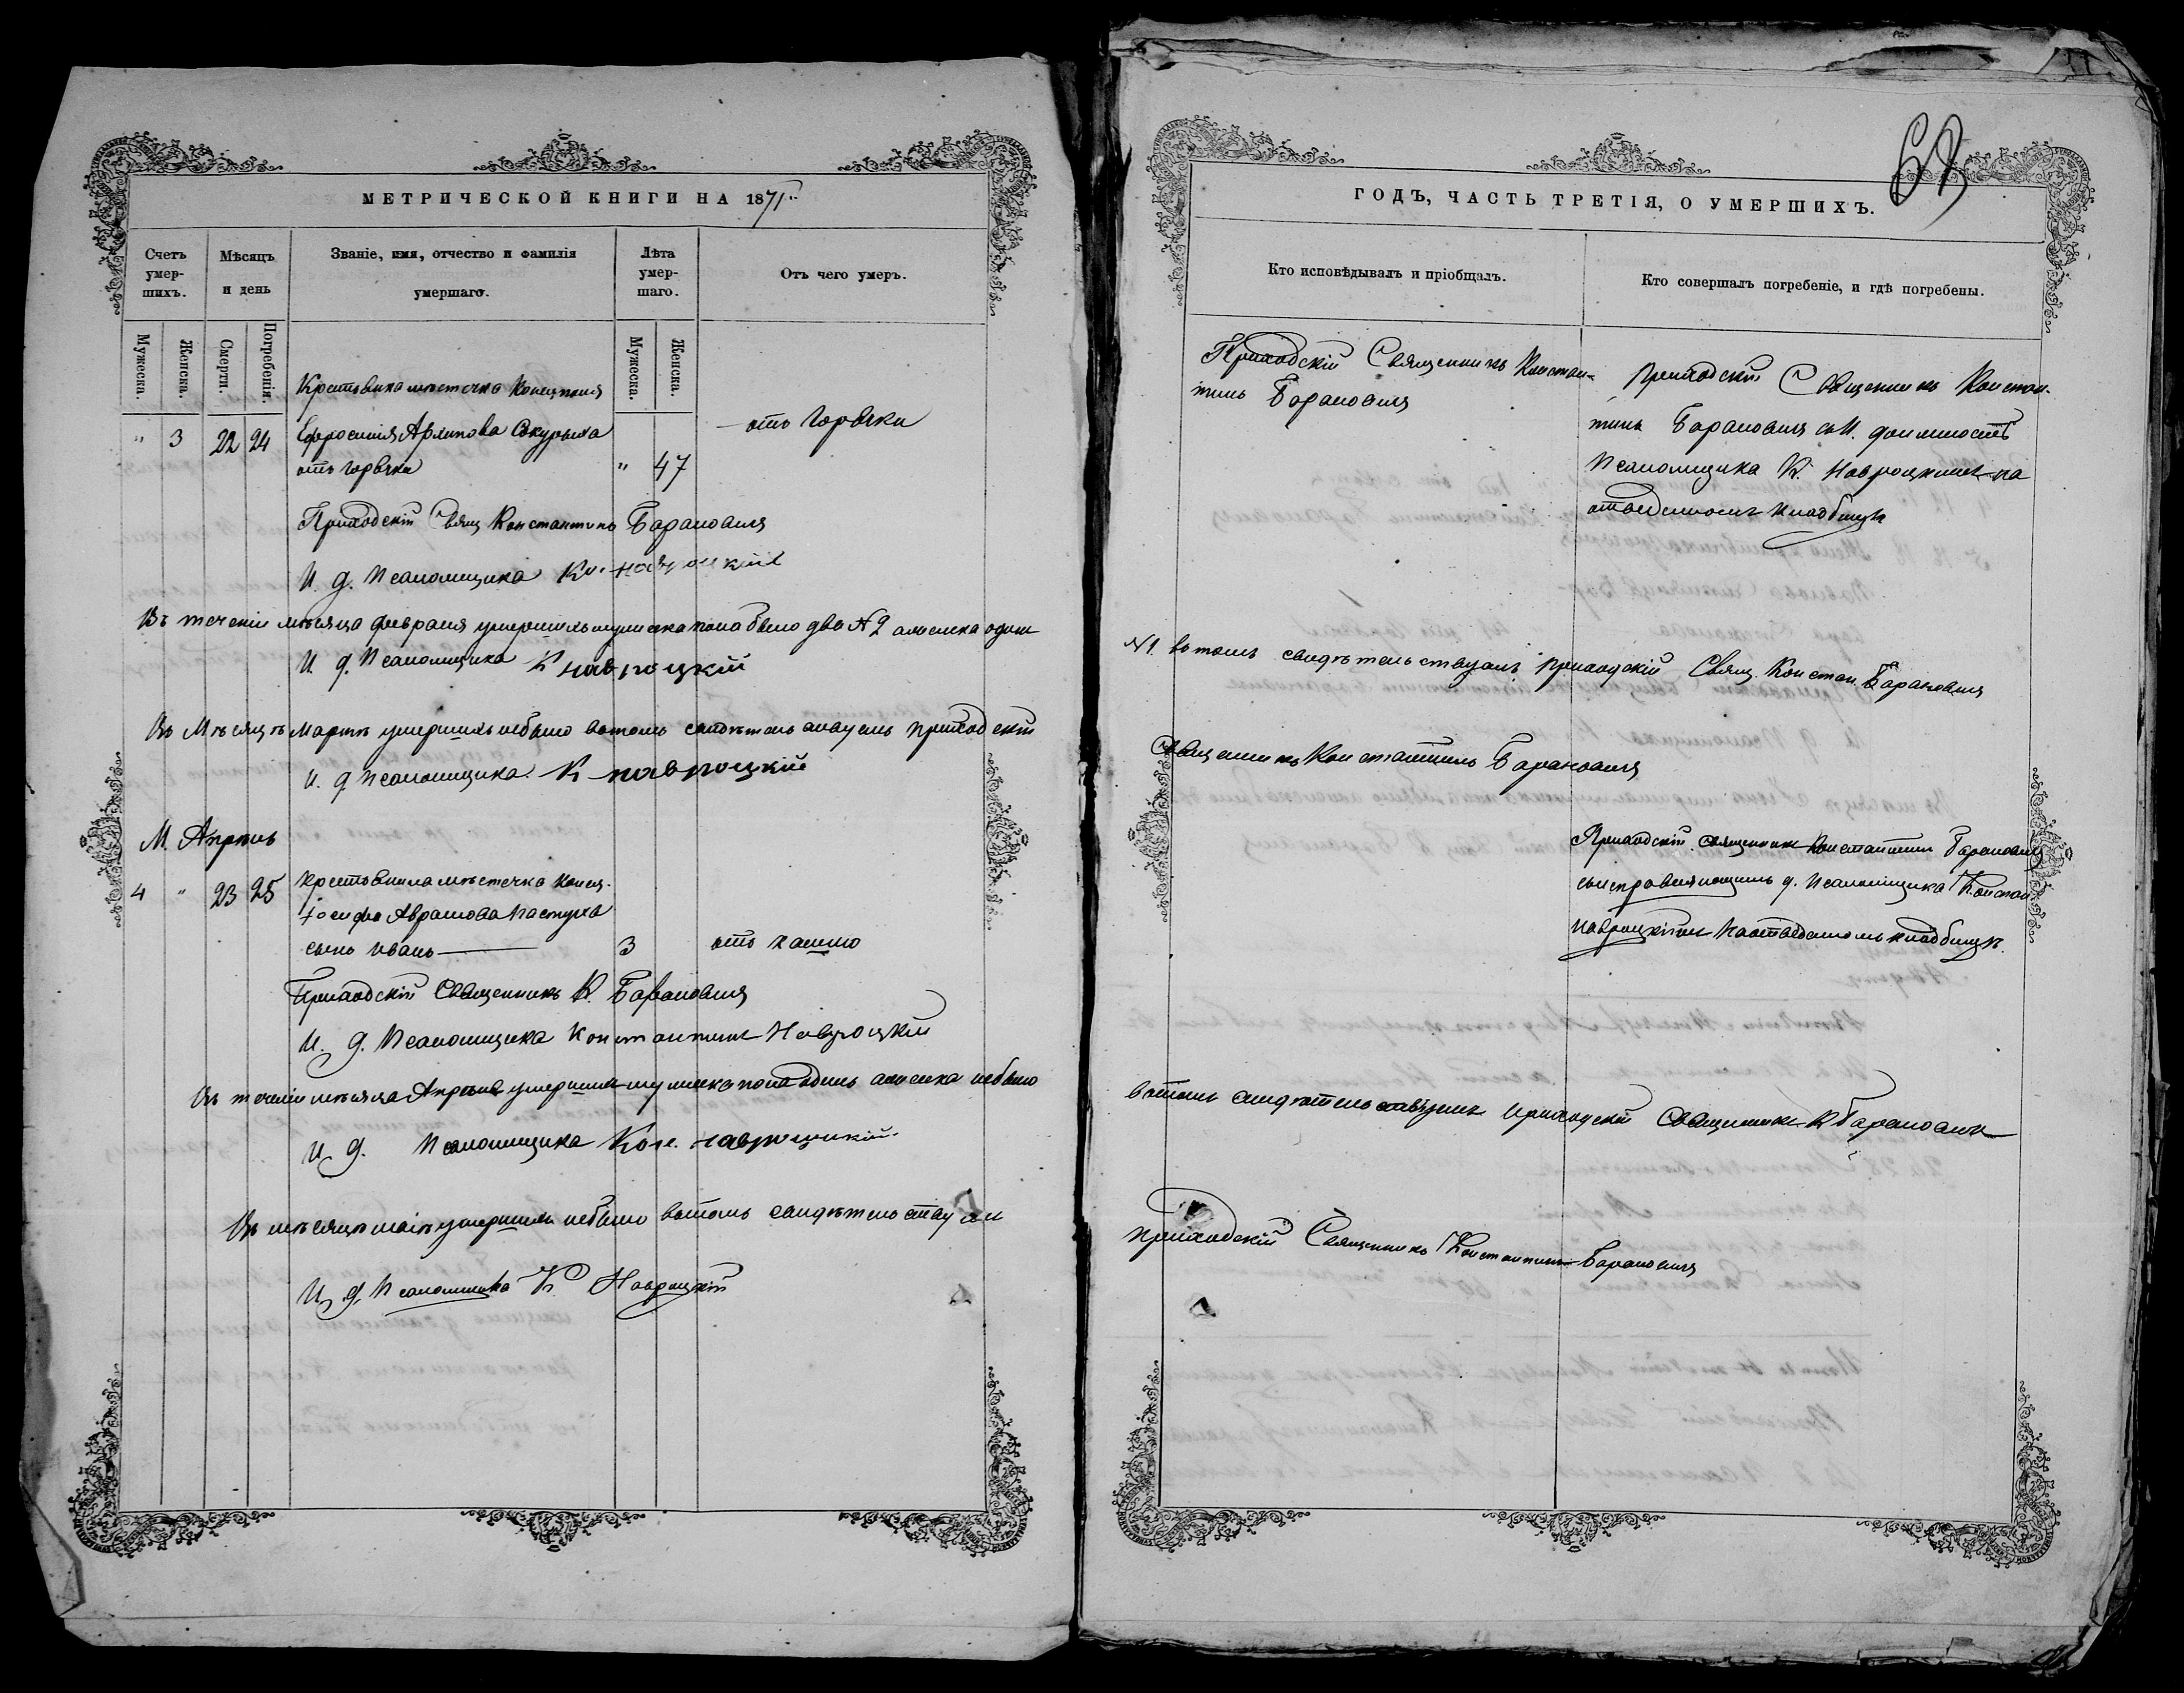 МЕТРИЧЕСКОЙ КНИГИ НА 1871
Счетъ умер-шихъ.
Мѣсяцъ и день
Званіе, имя, отчество и фамилія умершаго.
Лѣта умер-шаго.
Отъ чего умеръ.
Мужеска.
Женска.
Смерти.
Погребенія.
Мужеска.
Женска.
Крестьянка мѣстечка
" 3 22 24 Ефросинія
отъ горячки " 47
отъ Горячки
Приходскій Свящ Константинъ Барановичъ
И. д. Псаломщика К. Навроцкій
Въ теченіи мѣсяца февраля умершихъ мужеска пола было два №2 а женска одна
И. д. Псаломщика К Навроцкій
Въ Мѣсяцѣ Мартѣ умершихъ небыло вътомъ свидѣтельствуемъ приходскій
и. д псаломщика К Навроцкій
М. Апрѣль
4 " 23 25 крестьянина мѣстечка
Іосифа Абрамова Пастуха
сынъ иванъ 3 отъ кашлю
Приходскій Священникъ К. Барановичъ
И. д. Псаломщика Константинъ Навроцкій
Въ теченіи мѣсяца Апрѣля умершихъ мужеска пола одинъ а женска небыло
И. д. Псаломщика Кон. Навроцкій
Въ мѣсяцѣ маіѣ умершихъ небыло вътомъ свидѣтельствуемъ
И. д. Псаломщика К Навроцкій
63
ГОДЪ, ЧАСТЬ ТРЕТІЯ, О УМЕРШИХЪ.
Кто исповѣдывалъ и пріобщалъ.
Кто совершалъ погребеніе, и гдѣ погребены.
Приходскій Священникъ Констан-
тинъ Барановичъ
Приходскій Священникъ Констан-
тинъ Барановичъ съ И. должность
Псаломщика К. Навроцкимъ на
отведенномъ кладбищѣ
№1. вътомъ свидѣтельствуемъ приходскій Свящ. Констан. Барановичъ
Священникъ Константинъ Барановичъ
Приходскій священникъ Константинъ Барановичъ
съ исправляющимъ д. Псаломщика Констан
Навроцкимъ на отведенномъ кладбищѣ.
вътомъ свидѣтельствуемъ приходскій Священникъ К Барановичъ
приходскій Священникъ Константинъ Барановичъ